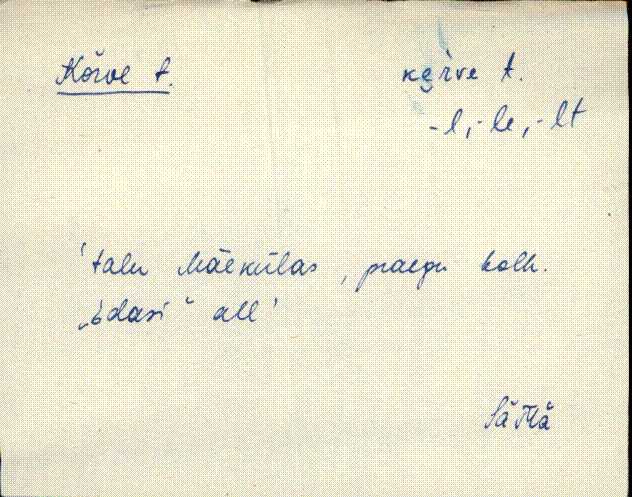 Kõrve t.
ke̮rve t.
-l, -le, -lt
'talu Mäekülas, praegu kolh.
„Edasi" all'